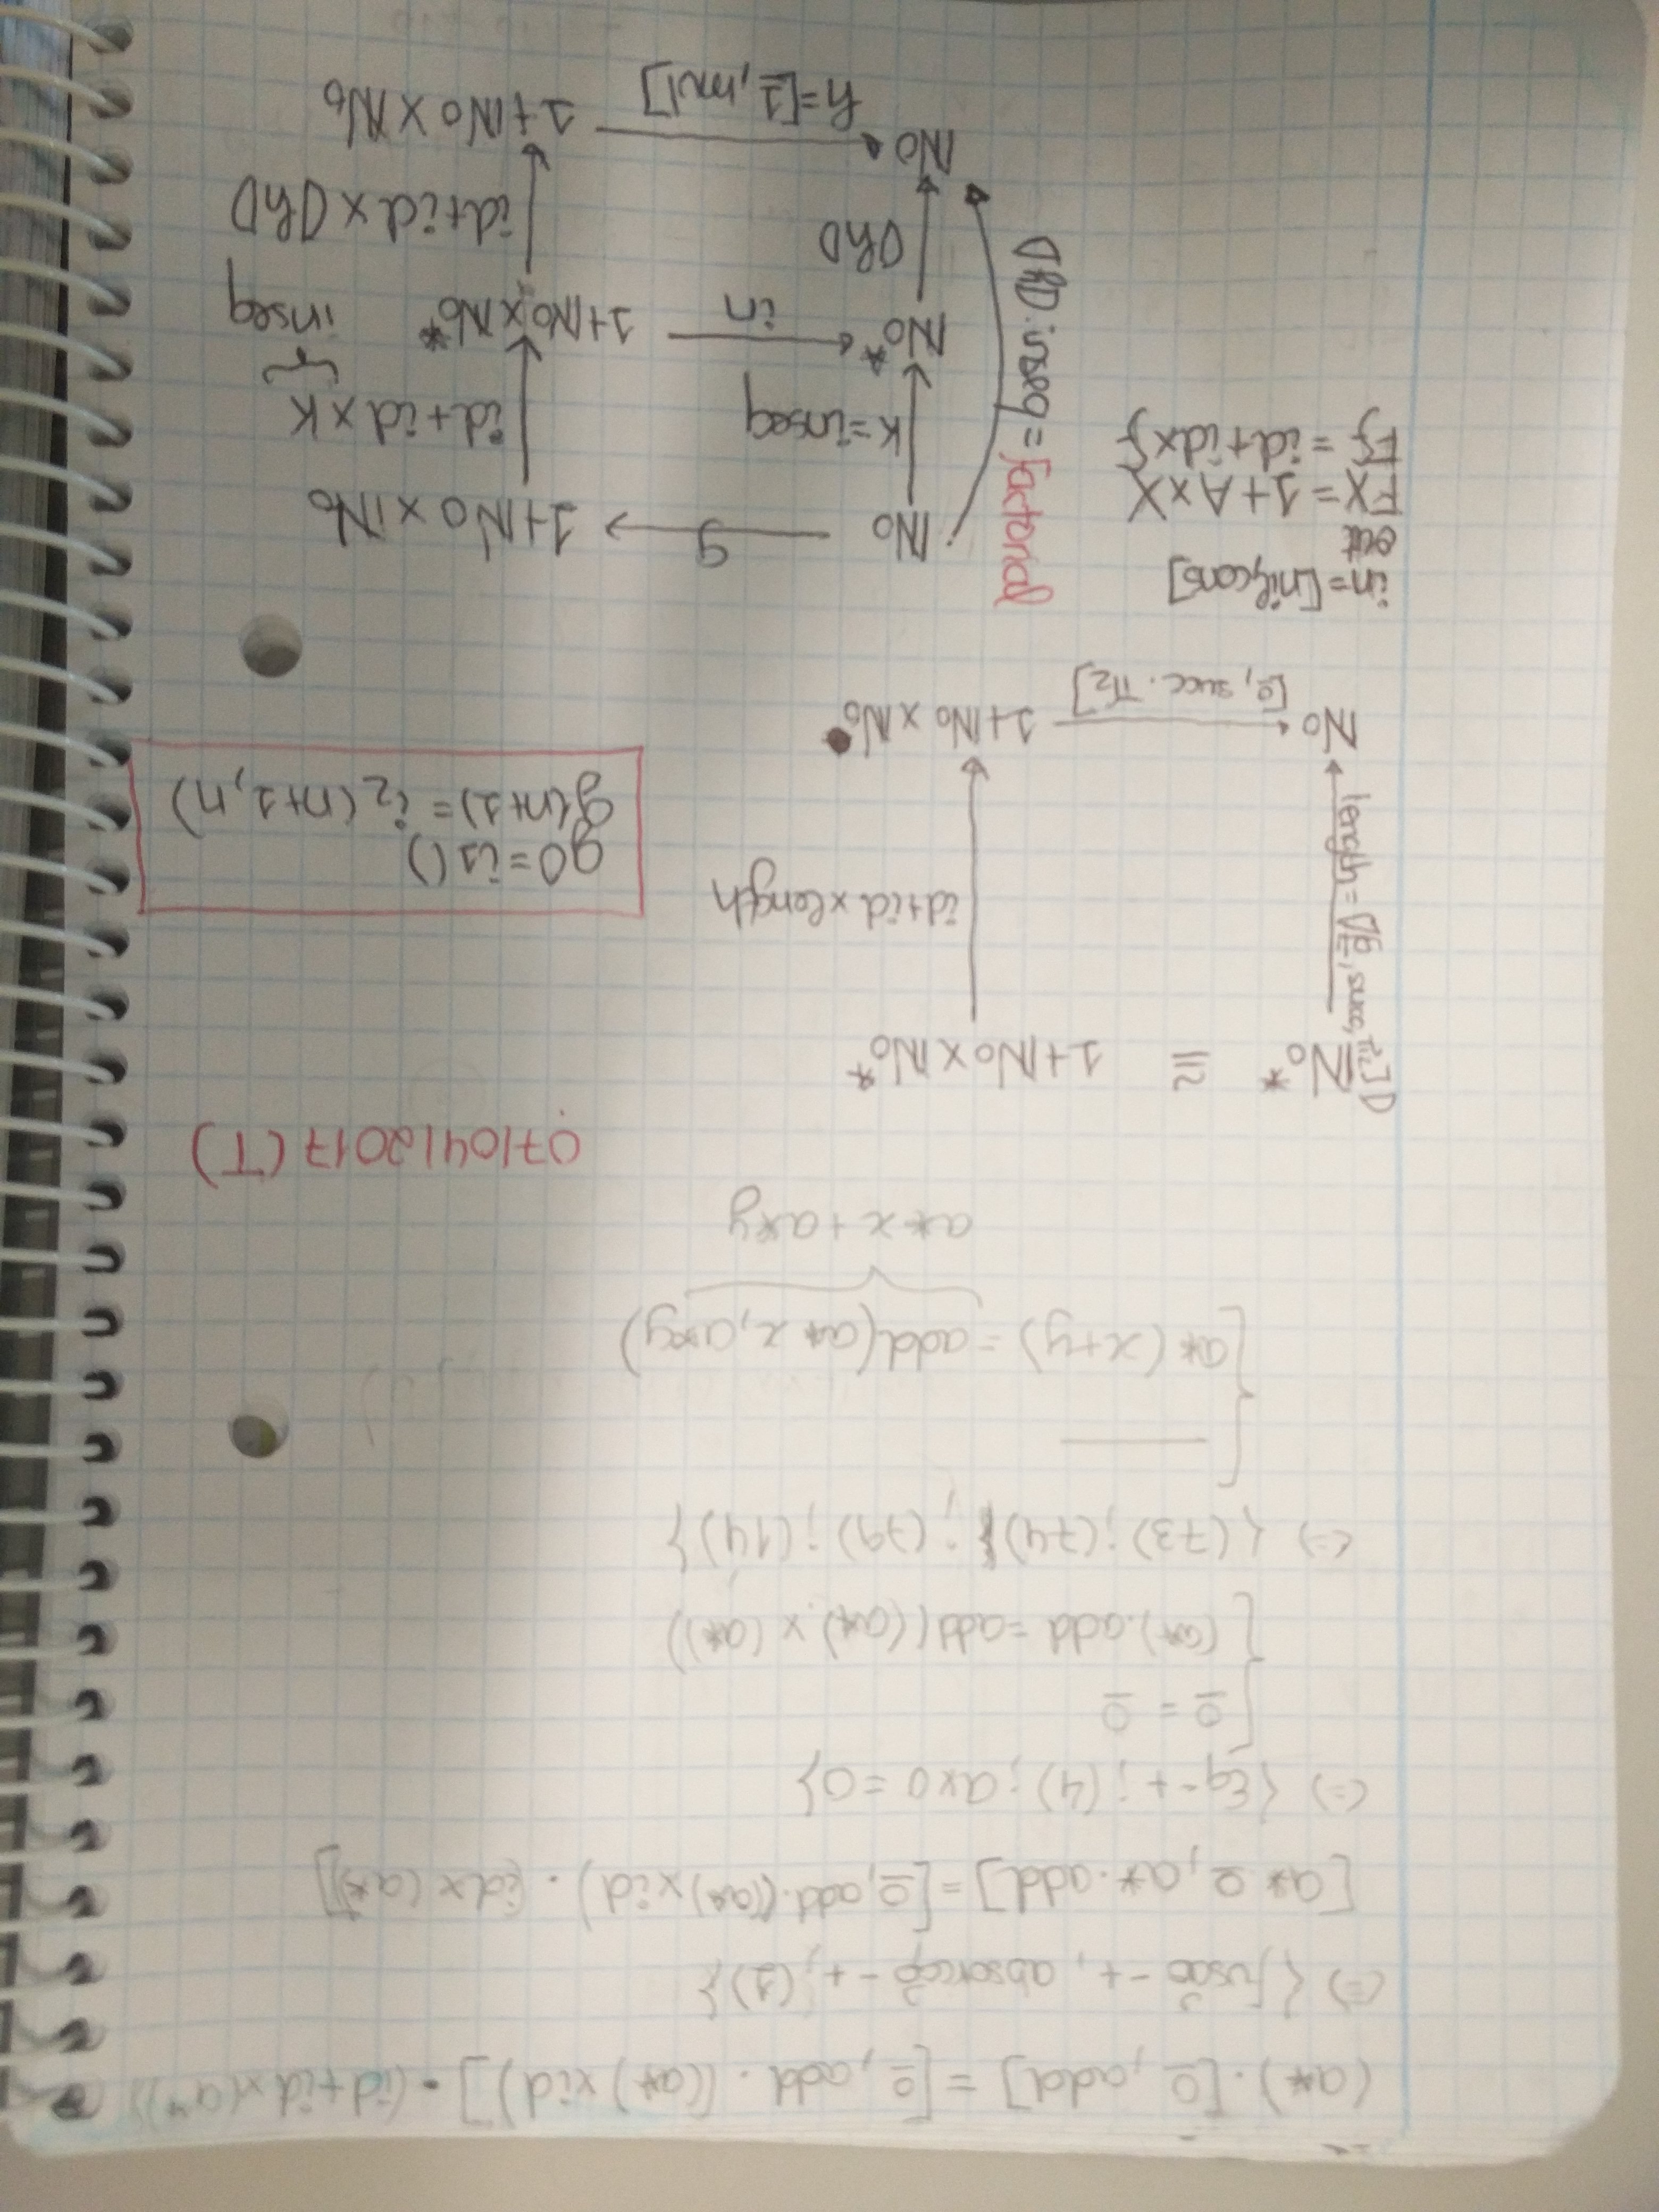 (a*) . [0̲ , add] = [0̲ , add . ((a*) × id)] . (id + id × (a*))
(=) {fusão - +, absorção - +, (1)}
[a* 0̲ , a* . add] = [0̲ , add . ((a*) × id) . (id × (a*))]
(=) {Eq - + ; (4) ; a × 0 = 0}
0̲ = 0̲
(a*) . add = add((a*) × (a*))
(=) {(73) ; (74) ; (79) ; (14)}
a* (x+y) = add(a* x, a*y)
a* x + a*y
07/04/2017 (T)
ℕ0* ≅ 1 + ℕ0 × ℕ0*
length = ⦇[0̲, succ, π2]⦈
id + id × length
g 0 = i1 ()
g(n+1) = i2 (n+1, n)
ℕ0 ← 1 + ℕ0 × ℕ0
[0̲, succ . π2]
in = [nil, cons]
out
FX = 1 + A × X
Ff = id + id × f
⦇h⦈ . inseq = factorial
ℕ0 → g 1 + ℕ0 × ℕ0
K = inseq
id + id × K
inseq
ℕ0* ← in 1 + ℕ0 × ℕ0*
⦇h⦈
id + id × ⦇h⦈
ℕ0 ← 1 + ℕ0 × ℕ0
h = [1̲, mul]